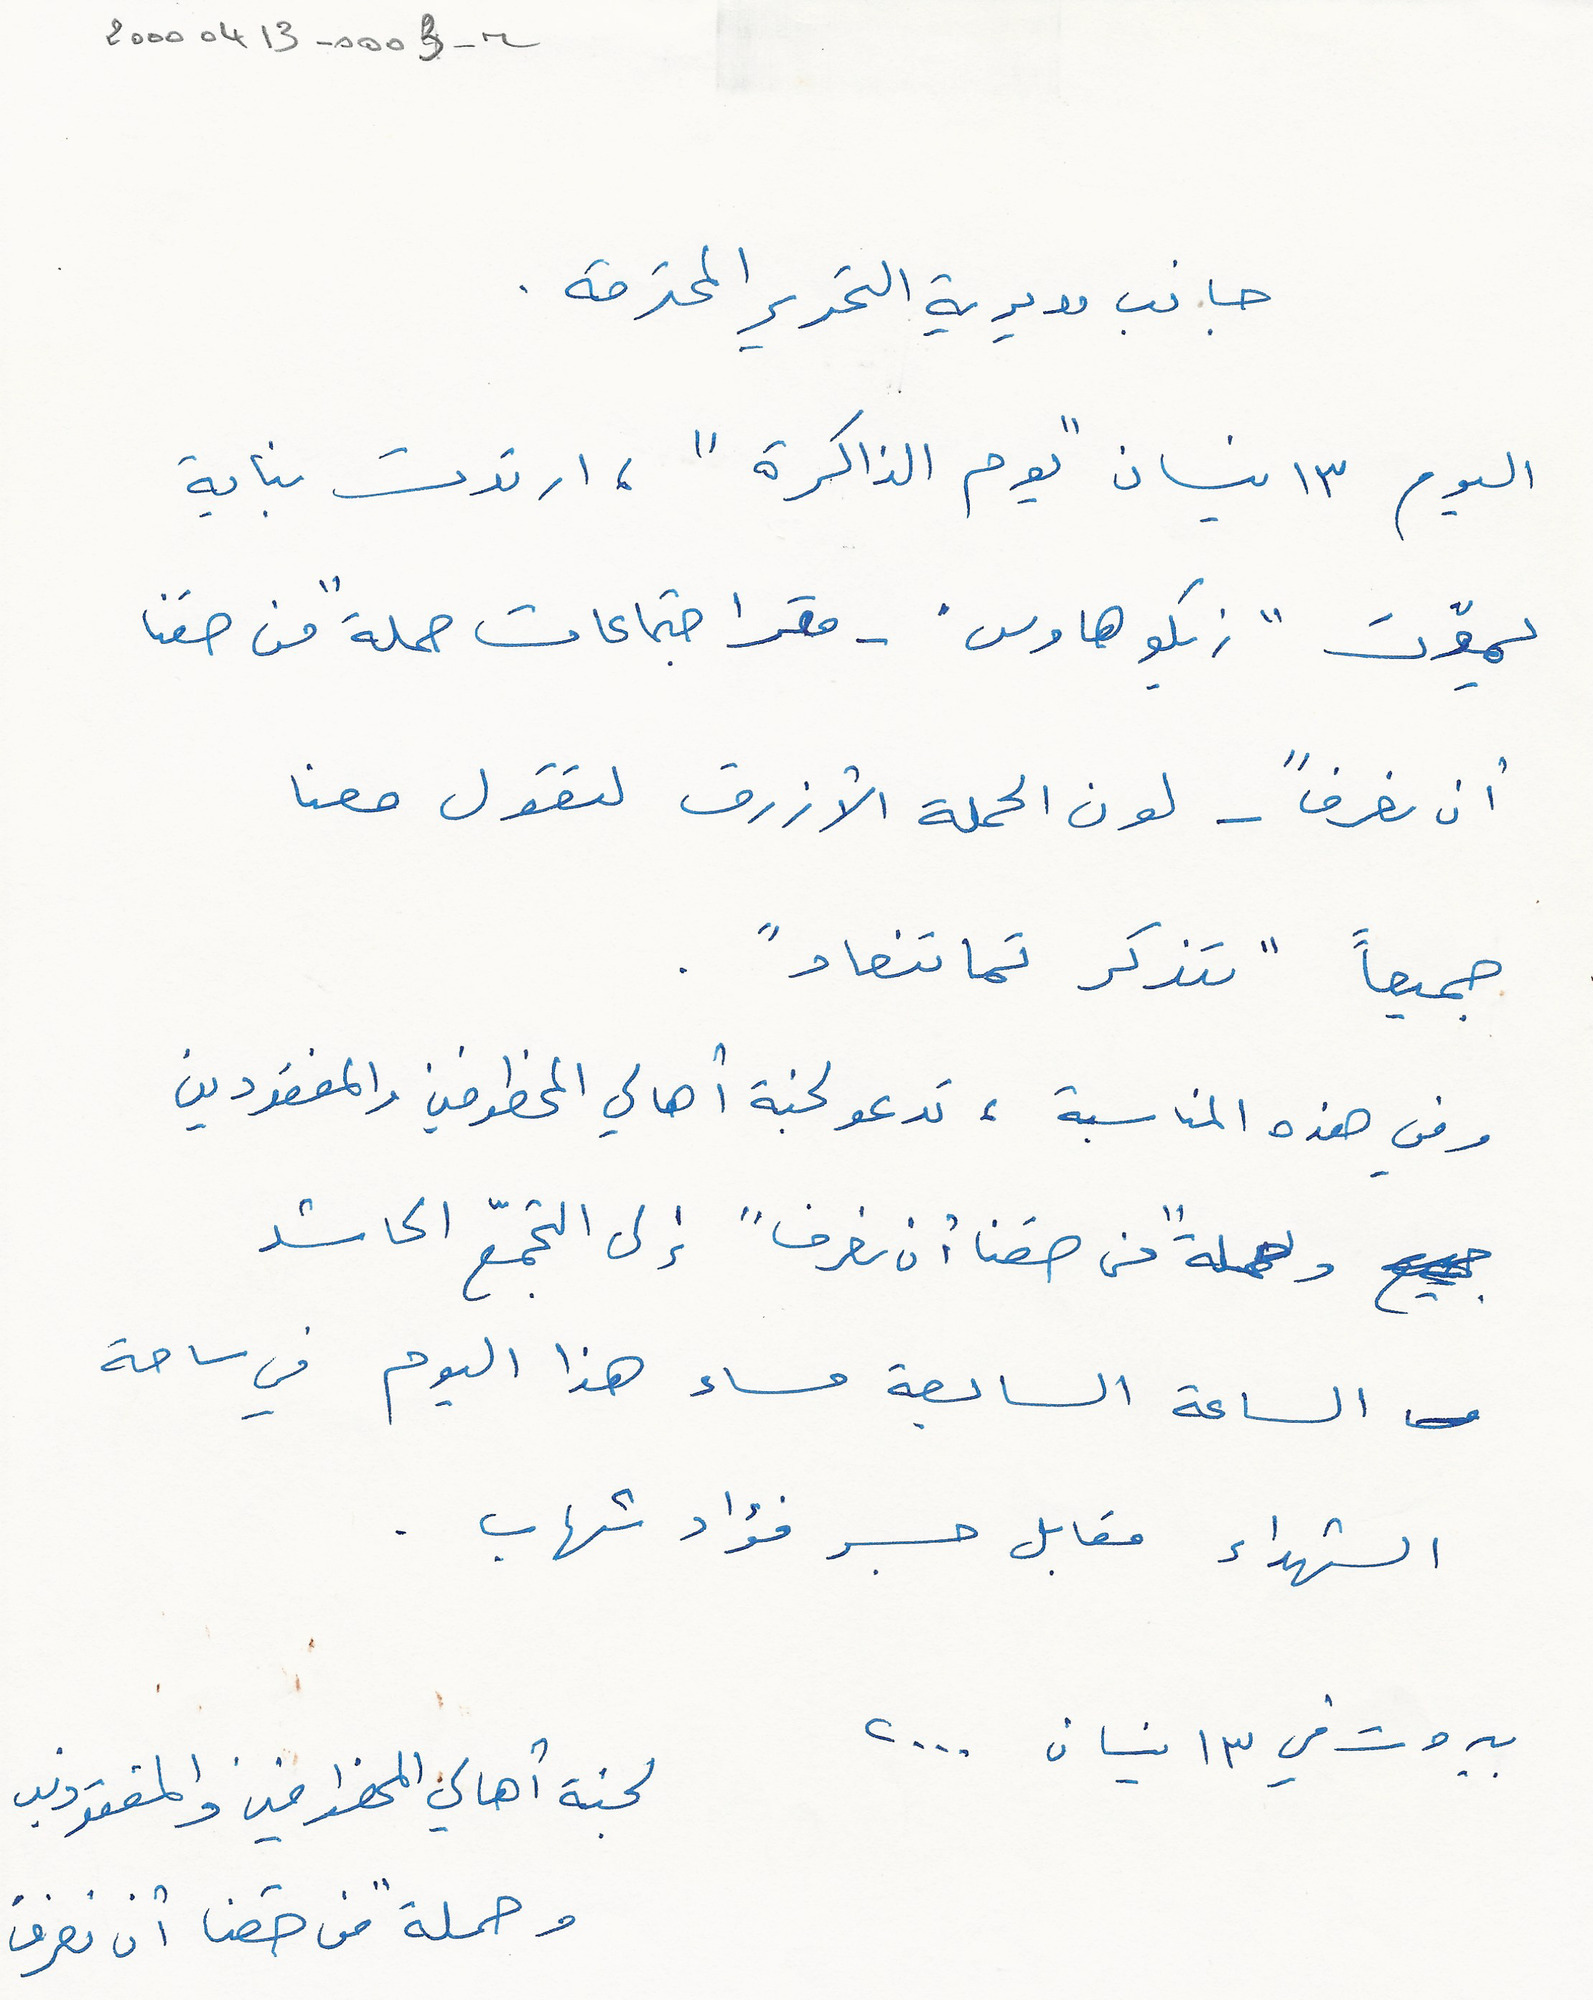 20000413-0003-2
جانب مديرية التحرير المحترمة .
اليوم ١٣ نيسان "يوم الذاكرة" ، ارتدت بناية
"زيكو هاوس" - مقر اجتماعات حملة "من حقنا
أن نعرف" - لون الحملة الأزرق لتقول معنا
جميعاً "تنذكر تما تنعاد" .
وفي هذه المناسبة ، تدعو لجنة أهالي المخطوفين والمفقودين
وحملة "من حقنا أن نعرف" إلى التجمّع الحاشد
الساعة السابعة مساء هذا اليوم في ساحة
الشهداء مقابل جسر فؤاد شهاب .
بيروت في ١٣ نيسان ٢٠٠٠
لجنة أهالي المخطوفين والمفقودين
وحملة "من حقنا أن نعرف